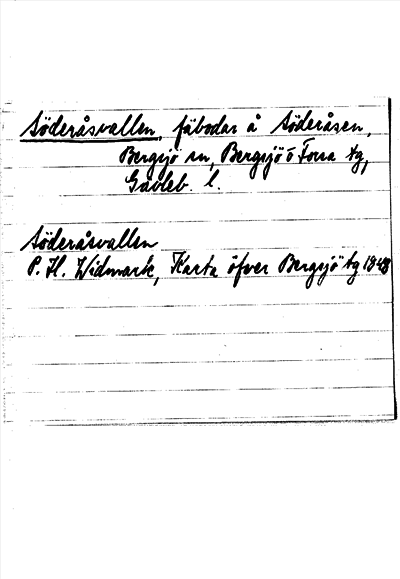 Söderåsvallen, fäbodar å Söderåsen,
Bergsjö sn, Bergsjö o Forsa tg,
Gävleb. l.
Söderåsvallen
P. H. Widmark, Karta öfver Bergsjö tg 1848